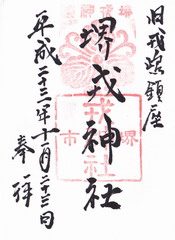 旧戎嶋鎮座
堺戎神社
平成二十二年十一月二十三日
奉拝